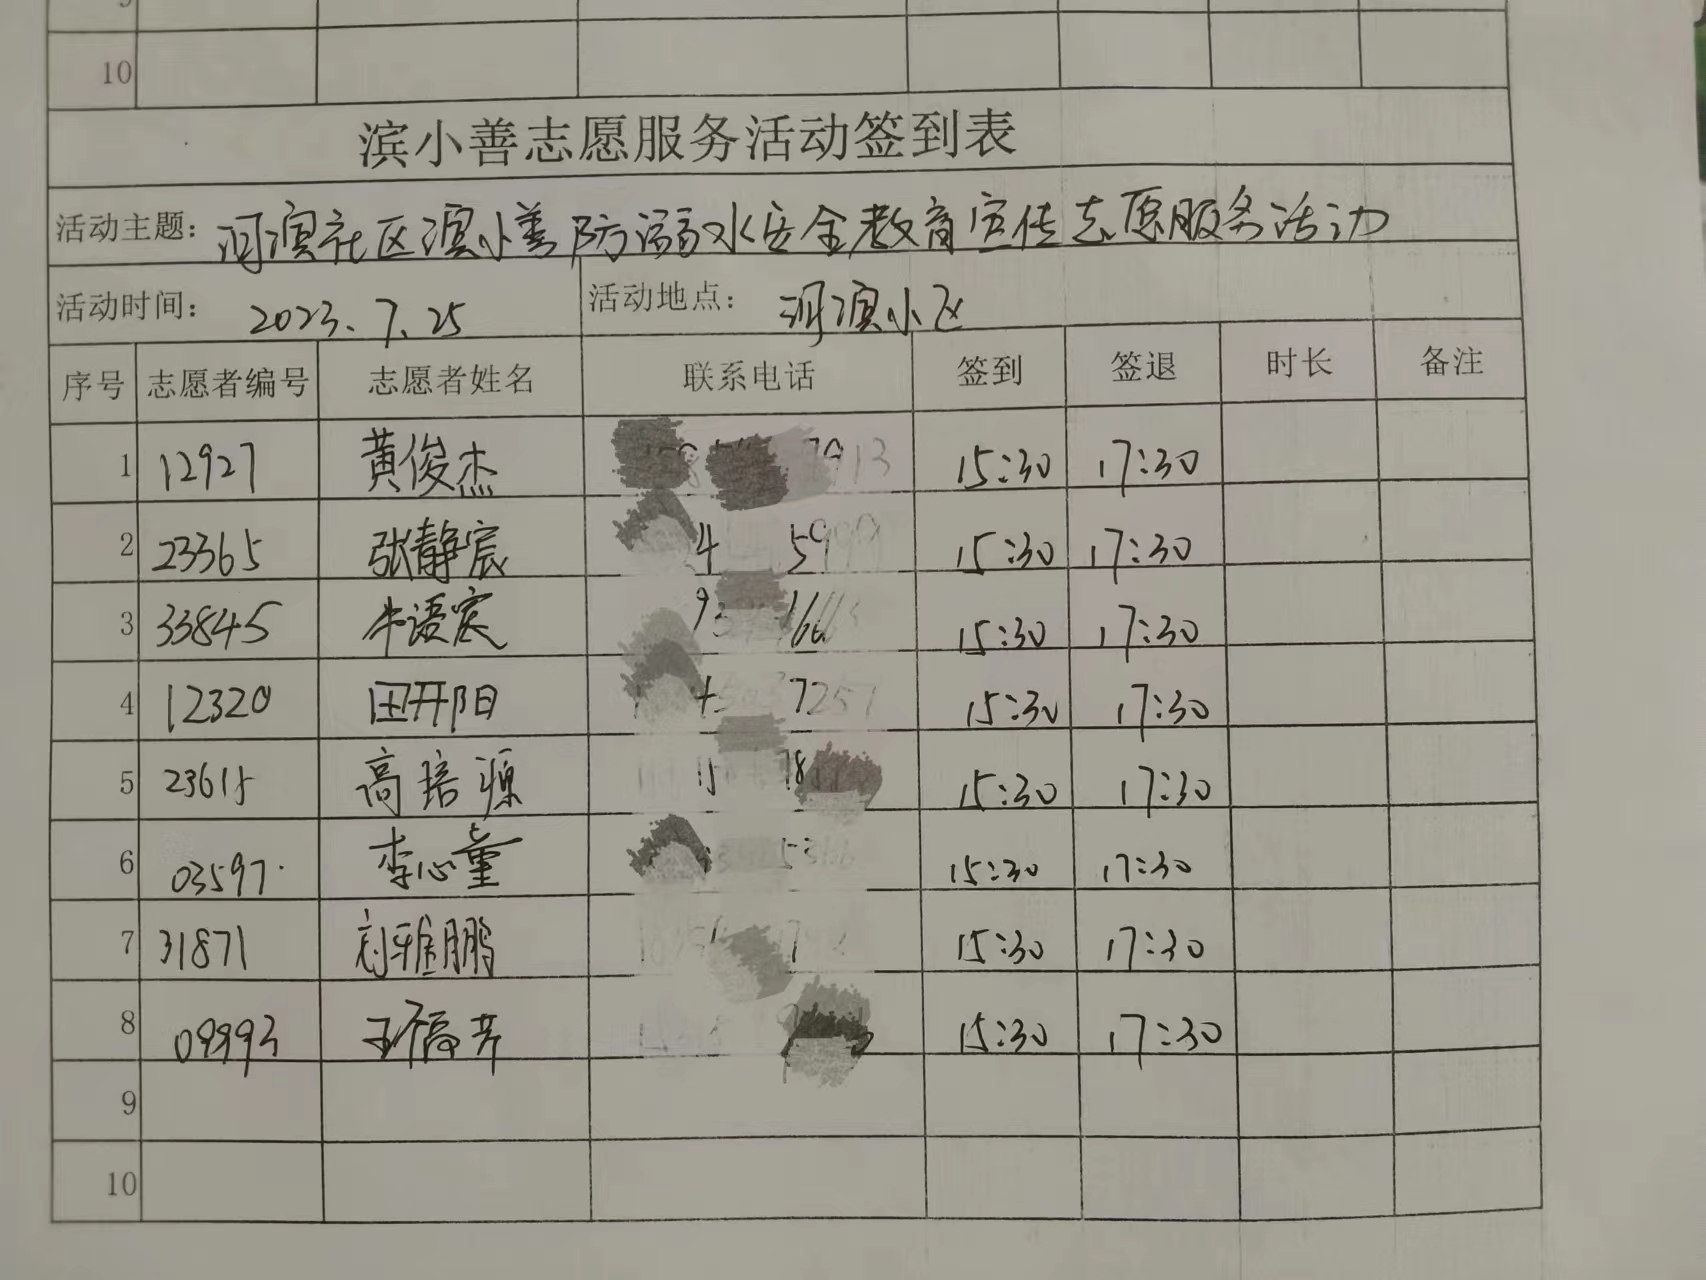 10
滨小善志愿服务活动签到表
活动主题： 河滨社区滨小善防溺水安全教育宣传志愿服务活动
活动时间： 2023.7.25 活动地点： 河滨小区
序号 志愿者编号 志愿者姓名 联系电话 签到 签退 时长 备注
1 12927 黄俊杰 15:30 17:30
2 23365 张静宸 15:30 17:30
3 33845 牛语宸 15:30 17:30
4 12320 田开阳 15:30 17:30
5 23615 高培源 15:30 17:30
6 03597 李心童 15:30 17:30
7 31871 刘雅鹏 15:30 17:30
8 09993 王福芹 15:30 17:30
9
10